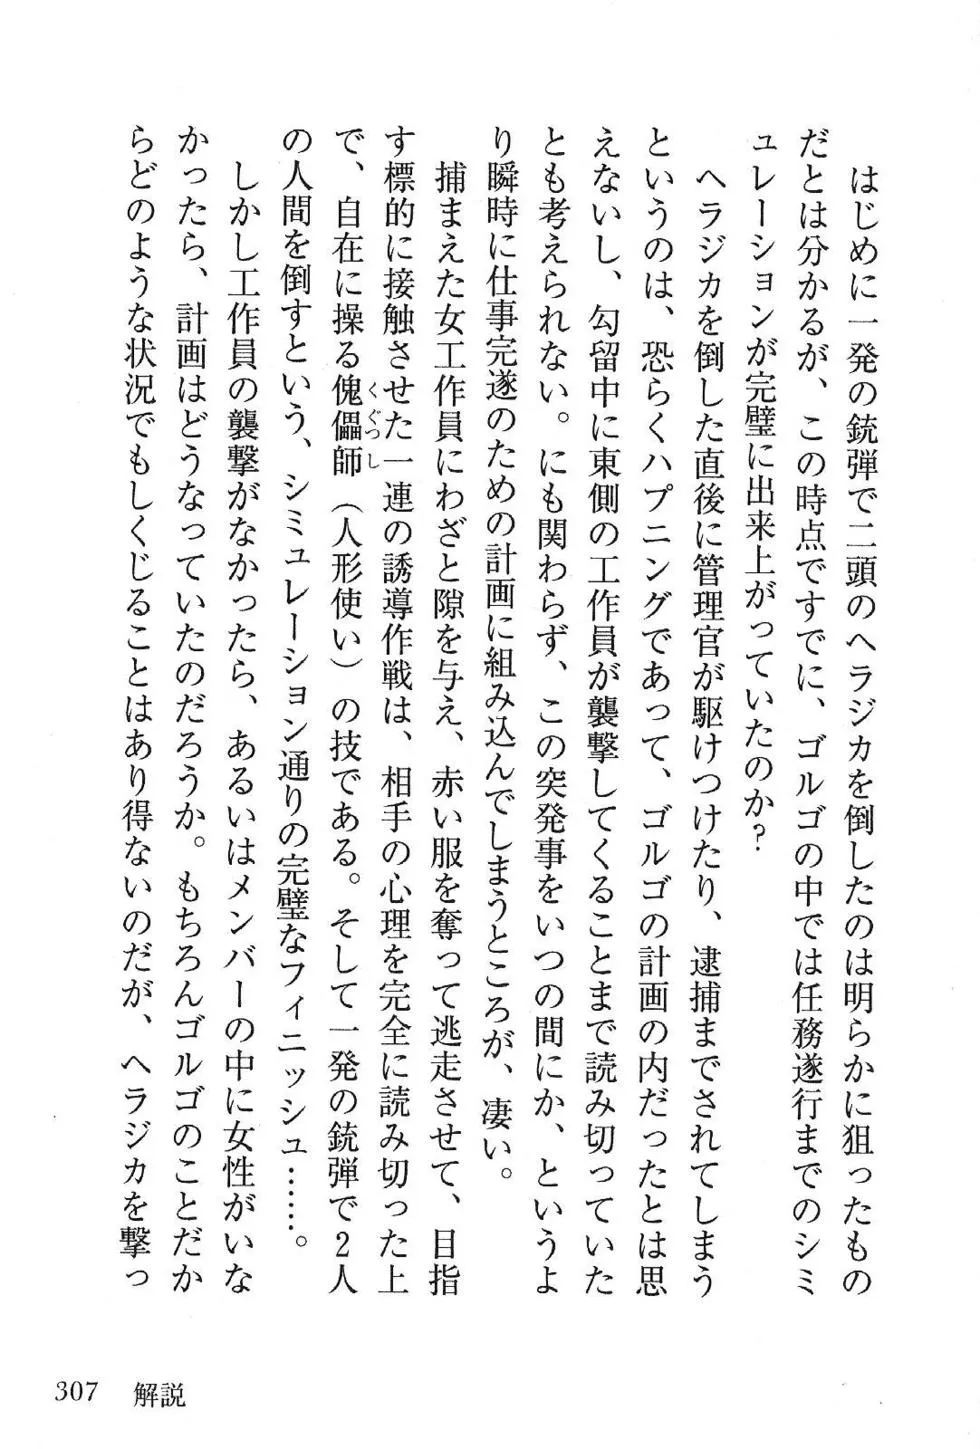 はじめに一発の銃弾で二頭のヘラジカを倒したのは明らかに狙ったもの
だとは分かるが、この時点ですでに、ゴルゴの中では任務遂行までのシミ
ュレーションが完璧に出来上がっていたのか?
ヘラジカを倒した直後に管理官が駆けつけたり、逮捕までされてしまう
というのは、恐らくハプニングであって、ゴルゴの計画の内だったとは思
えないし、勾留中に東側の工作員が襲撃してくることまで読み切っていた
とも考えられない。にも関わらず、この突発事をいつの間にか、というよ
り瞬時に仕事完遂のための計画に組み込んでしまうところが、凄い。
捕まえた女工作員にわざと隙を与え、赤い服を奪って逃走させて、目指
す標的に接触させた一連の誘導作戦は、相手の心理を完全に読み切った上
で、自在に操る傀儡師（人形使い）の技である。そして一発の銃弾で2人
くぐつし
の人間を倒すという、シミュレーション通りの完璧なフィニッシュ……。
しかし工作員の襲撃がなかったら、あるいはメンバーの中に女性がいな
かったら、計画はどうなっていたのだろうか。もちろんゴルゴのことだか
らどのような状況でもしくじることはあり得ないのだが、ヘラジカを撃っ
307 解説